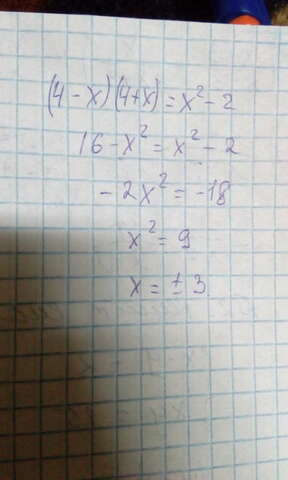 (4-x)(4+x)=x²-2
16-x²=x²-2
-2x²=-18
x²=9
x=±3